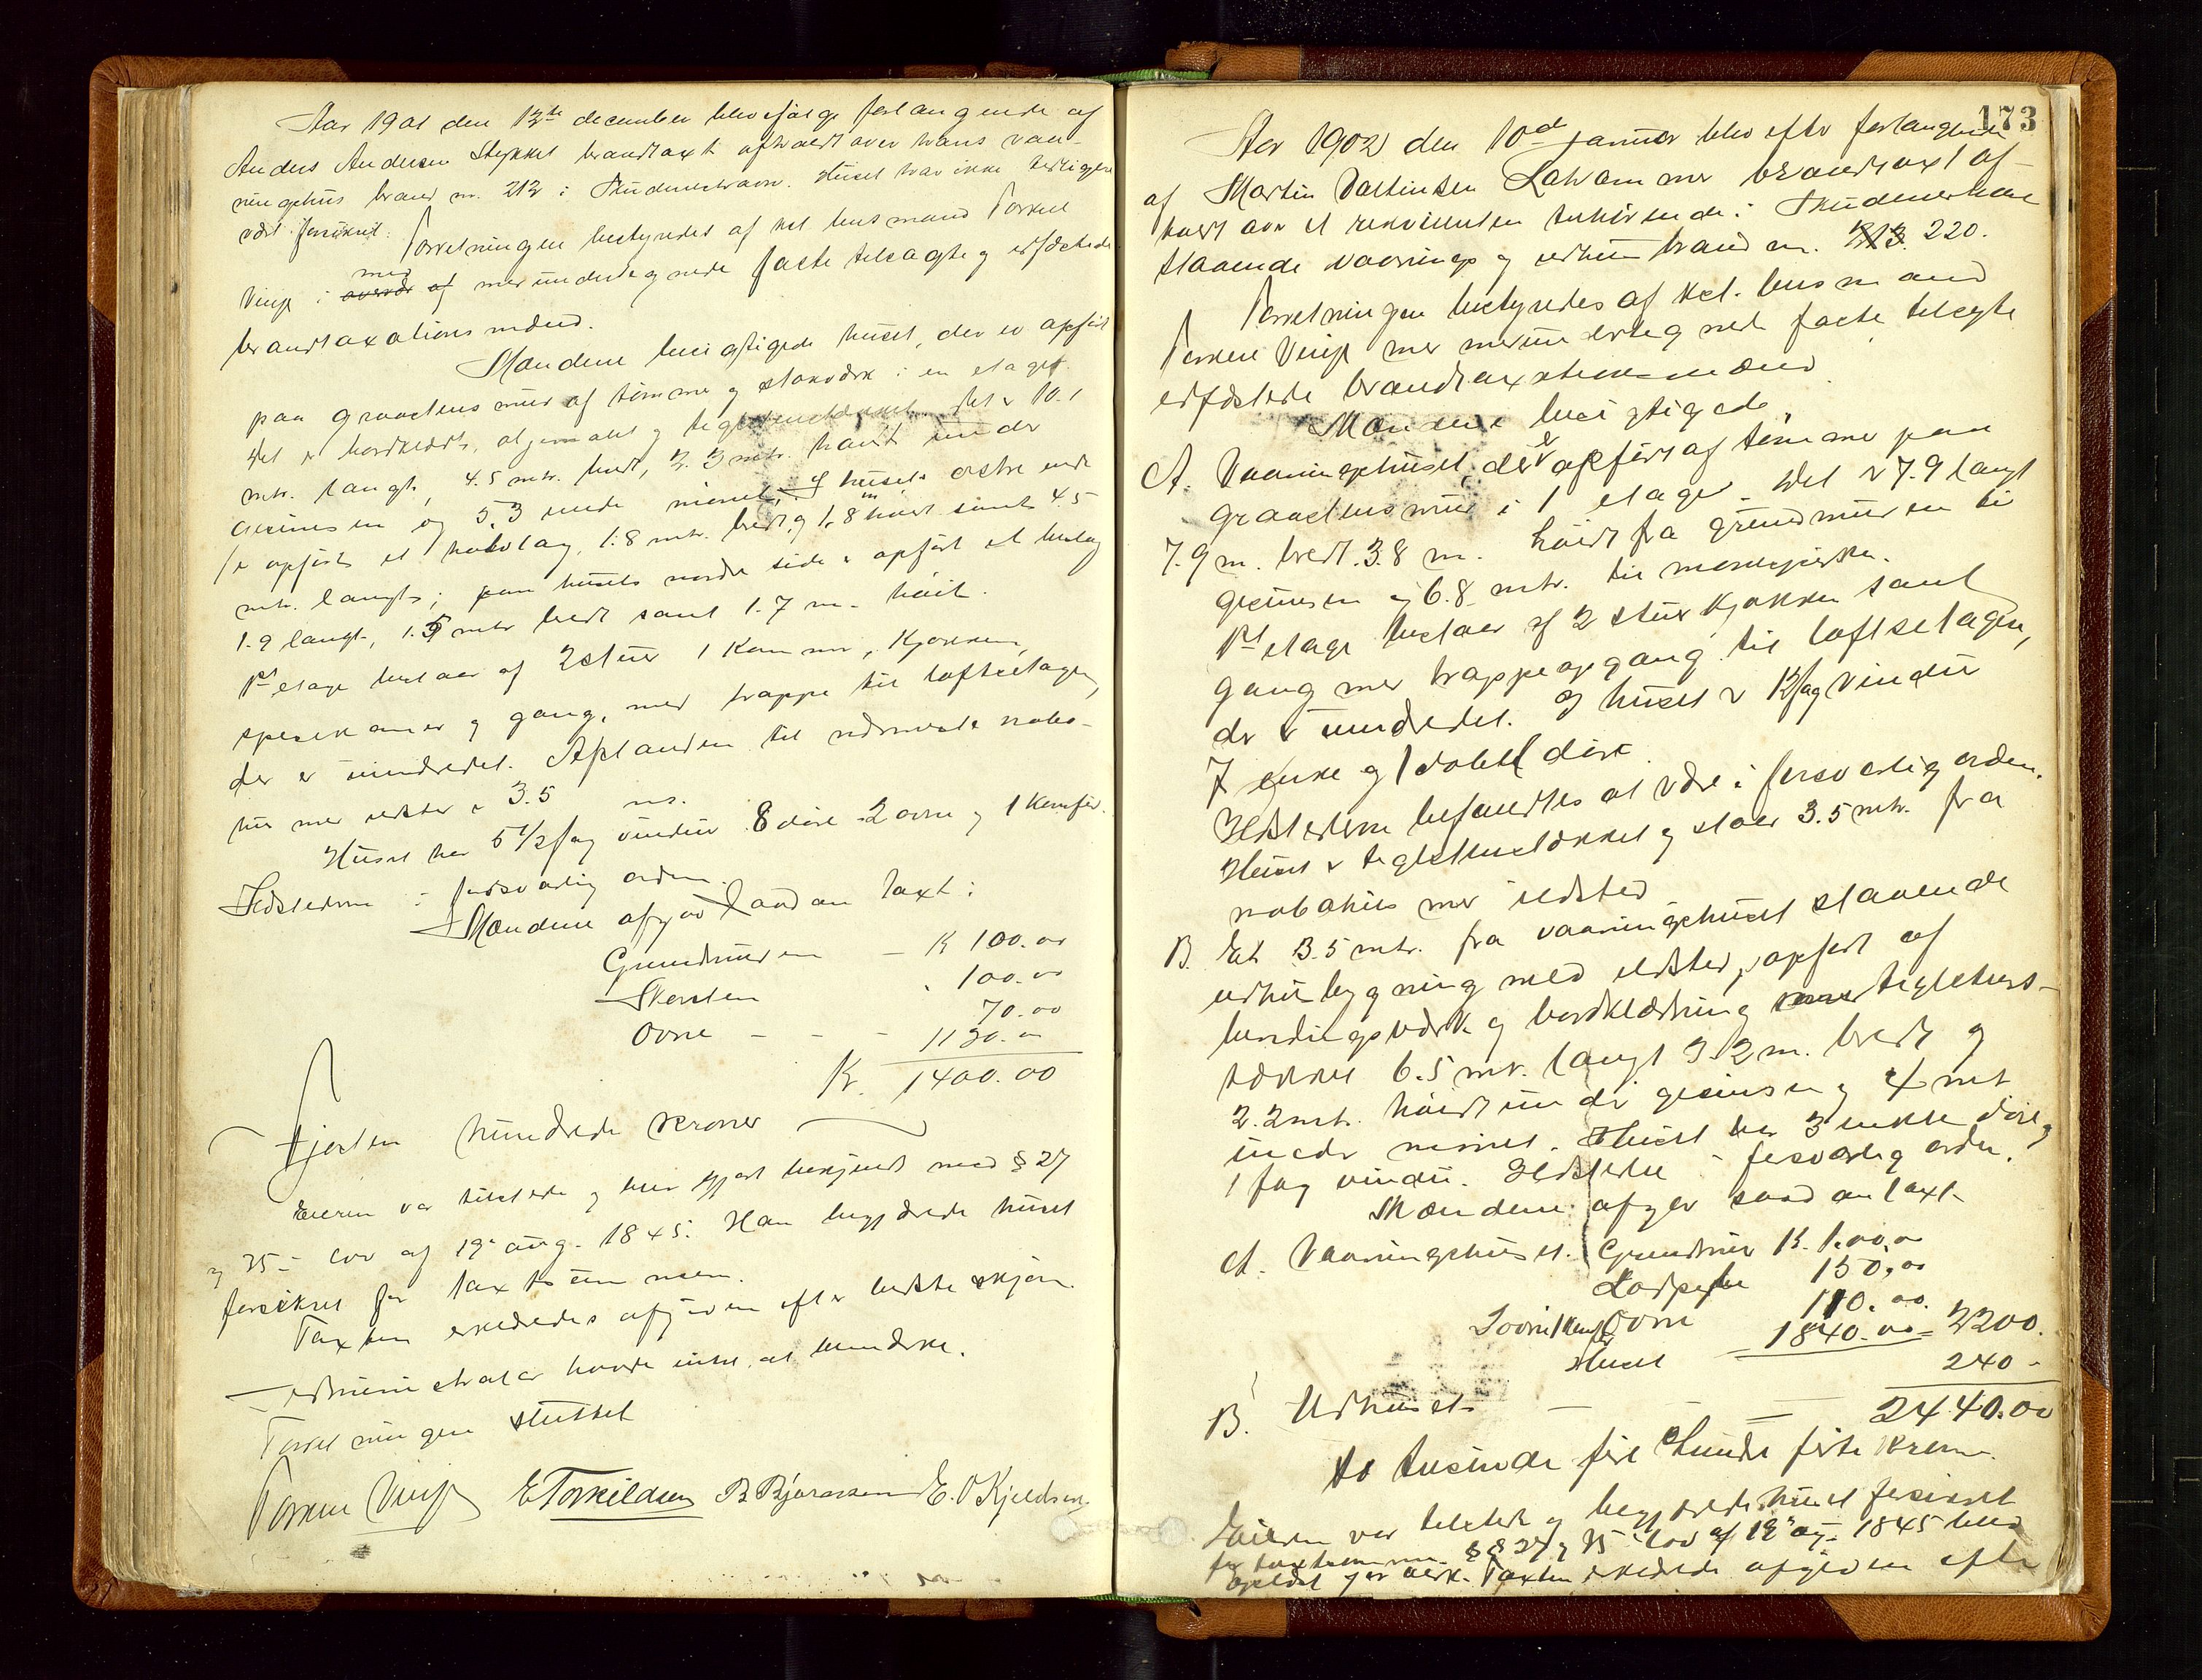 Aar 1901 den 13de december blev ifølge forlangende af
Anders Andersen Stykket brandtaxt afholdt over hans vaa-
ningshus brand nr. 213 i Skudeneshavn. Huset har ikke tidligere
vært forsikret. Forretningen bestyredes af kst lensmand Torkel
Vinje i overvær af med medundertegnede faste tilsagte og edfæstede
brandtaxationsmænd.
Mændene besigtigede huset, der er opført
paa graastens mur af tømmer og stavværk i en etage.
Det er bordklædt, oljemalt og teglstenstækket. Det er 10.1
mtr. langt, 4.5 mtr. bredt, 3.3 mtr. høidt under
gesimsen og 5.3 under mønet, af husets østre ende
er opført et halvtag, 1.8 mtr. bredt og 1.8 m høidt samt 4.5
mtr. langt; paa husets nordre side er opført et bislag
1.9 langt, 1.5 mtr bredt samt 1.7 m. høit.
1st etage bestaar af 2 stuer 1 kammer, kjøkken,
spisekammer og gang, med trappe til loftsetagen,
der er uindredet. Afstanden til nærmeste nabo-
hus med ildsted er 3.5 m.
Huset har 5 1/2 fag vinduer 8 døre 2 ovne og 1 komfur.
Ildstederne i forsvarlig orden.
Mændene afgav saadan taxt:
Grundmuren - K 100.00
Skorsten " 100.00
Ovne - - - 70.00
1130.00
Kr. 1400.00
Fjorten hundrede kroner
Eieren var tilstede og blev gjort bekjendt med § 27
og 35 i lov af 19de aug. 1845. Han begjærede huset
forsikret for taxtsummen.
Taxten erklæredes afgiven efter bedste skjøn.
Administrator havde intet at bemærke.
Forretningen sluttet
Torkel Vinje E Torkildsen B Bjørnsen E. O Kjeldsen
173
Aar 1902 den 10de januar blev efter forlangende
af Martin Valtinsen Lahammer brandtaxt af-
holdt over et rekvirenten tilhørende i Skudeneshavn
staaende vaanings og udhus brand nr. 313. 220.
Forretningen bestyredes af kst. lensmand
Torkel Vinje med medundertegnede faste tilsagte
edfæstede brandtaxationsmænd
Mændene besigtigede
A. Vaaningshuset, der er opført af tømmer paa
graastensmur i 1 etage. Det er 7.9 langt
7.9 m. bredt 3.8 m. høidt fra grundmuren til
gesimsen og 6.8 mtr. til mønespidsen.
1st etage bestaar af 2 stuer kjøkken samt
gang med trappeopgang til loftsetagen,
der er uindredet. I huset er 12 fag vinduer
7 enkle og 1 dobbelt dør.
Ildstederne befandtes at være i forsvarlig orden.
Huset er teglstenstækket og staar 3.5 mtr. fra
nabohus med ildsted
B. Et 3.5 mtr. fra vaaningshuset staaende
udhusbygning med ildsted, opført af
bindingsværk og bordklædning teglstens-
tækket 6.5 mtr. langt 3.2 m. bredt og
2.2 mtr. høidt under gesimsen og 4 mtr
under mønet. Huset har 3 enkle døre og
1 fag vindu. Ildstedet i forsvarlig orden.
Mændene afgav saadan taxt
A. Vaaningshuset. Grundmur K. 100.00
150.00
Ovne 110.00
Huset 1840.00 = 2200.
B. Udhuset - - - 240 -
2440.00
to tusinde fire hundre førti kroner.
Eieren var tilstede og begjærede huset forsikret
for taxtsummen. §§ 27 og 35 i lov af 19de aug. 1845 blev
oplæst for eieren. Taxten erklæredes afgiven efter